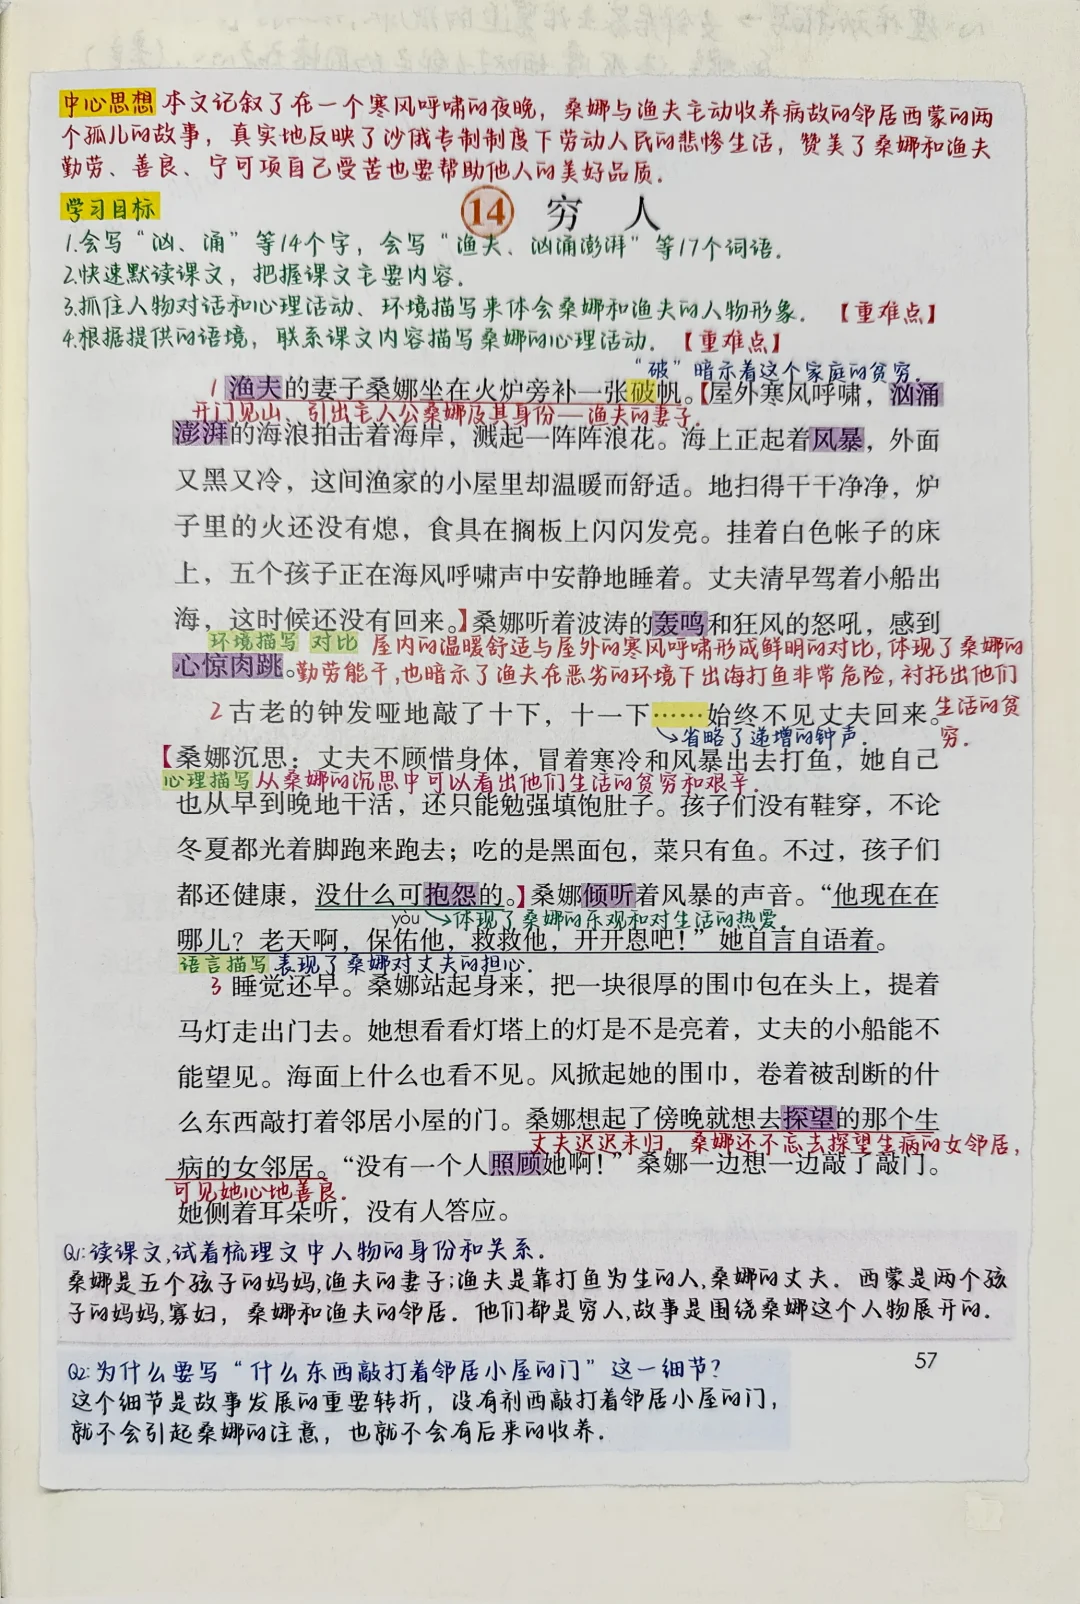 中心思想 本文记叙了在一个寒风呼啸的夜晚，桑娜与渔夫主动收养病故的邻居西蒙的两
个孤儿的故事，真实地反映了沙俄专制制度下劳动人民的悲惨生活，赞美了桑娜和渔夫
勤劳、善良、宁可项自己受苦也要帮助他人的美好品质.
学习目标
14 穷人
1.会写“汹、涌”等14个字，会写“渔夫、汹涌澎湃”等17个词语.
2.快速默读课文，把握课文主要内容.
3.抓住人物对话和心理活动、环境描写来体会桑娜和渔夫的人物形象. 【重难点】
4.根据提供的语境，联系课文内容描写桑娜的心理活动. 【重难点】
“破”暗示着这个家庭的贫穷.
1 渔夫的妻子桑娜坐在火炉旁补一张破帆。【屋外寒风呼啸，汹涌
开门见山，引出主人公桑娜及其身份—渔夫的妻子.
澎湃的海浪拍击着海岸，溅起一阵阵浪花。海上正起着风暴，外面
又黑又冷，这间渔家的小屋里却温暖而舒适。地扫得干干净净，炉
子里的火还没有熄，食具在搁板上闪闪发亮。挂着白色帐子的床
上，五个孩子正在海风呼啸声中安静地睡着。丈夫清早驾着小船出
海，这时候还没有回来。】桑娜听着波涛的轰鸣和狂风的怒吼，感到
环境描写 对比 屋内的温暖舒适与屋外的寒风呼啸形成鲜明的对比，体现了桑娜的
心惊肉跳。勤劳能干，也暗示了渔夫在恶劣的环境下出海打鱼非常危险，衬托出他们
生活的贫
穷.
2 古老的钟发哑地敲了十下，十一下……始终不见丈夫回来。
省略了递增的钟声.
【桑娜沉思：丈夫不顾惜身体，冒着寒冷和风暴出去打鱼，她自己
心理描写 从桑娜的沉思中可以看出他们生活的贫穷和艰辛.
也从早到晚地干活，还只能勉强填饱肚子。孩子们没有鞋穿，不论
冬夏都光着脚跑来跑去；吃的是黑面包，菜只有鱼。不过，孩子们
都还健康，没什么可抱怨的。】桑娜倾听着风暴的声音。“他现在在
yòu
体现了桑娜的乐观和对生活的热爱.
哪儿？老天啊，保佑他，救救他，开开恩吧！”她自言自语着。
语言描写 表现了桑娜对丈夫的担心.
3 睡觉还早。桑娜站起身来，把一块很厚的围巾包在头上，提着
马灯走出门去。她想看看灯塔上的灯是不是亮着，丈夫的小船能不
能望见。海面上什么也看不见。风掀起她的围巾，卷着被刮断的什
么东西敲打着邻居小屋的门。桑娜想起了傍晚就想去探望的那个生
丈夫迟迟未归，桑娜还不忘去探望生病的女邻居，
病的女邻居。“没有一个人照顾她啊！”桑娜一边想一边敲了敲门。
可见她心地善良.
她侧着耳朵听，没有人答应。
Q1:读课文,试着梳理文中人物的身份和关系.
桑娜是五个孩子的妈妈,渔夫的妻子;渔夫是靠打鱼为生的人,桑娜的丈夫. 西蒙是两个孩
子的妈妈,寡妇，桑娜和渔夫的邻居. 他们都是穷人,故事是围绕桑娜这个人物展开的.
57
Q2:为什么要写“什么东西敲打着邻居小屋的门”这一细节?
这个细节是故事发展的重要转折，没有剂西敲打着邻居小屋的门，
就不会引起桑娜的注意，也就不会有后来的收养.